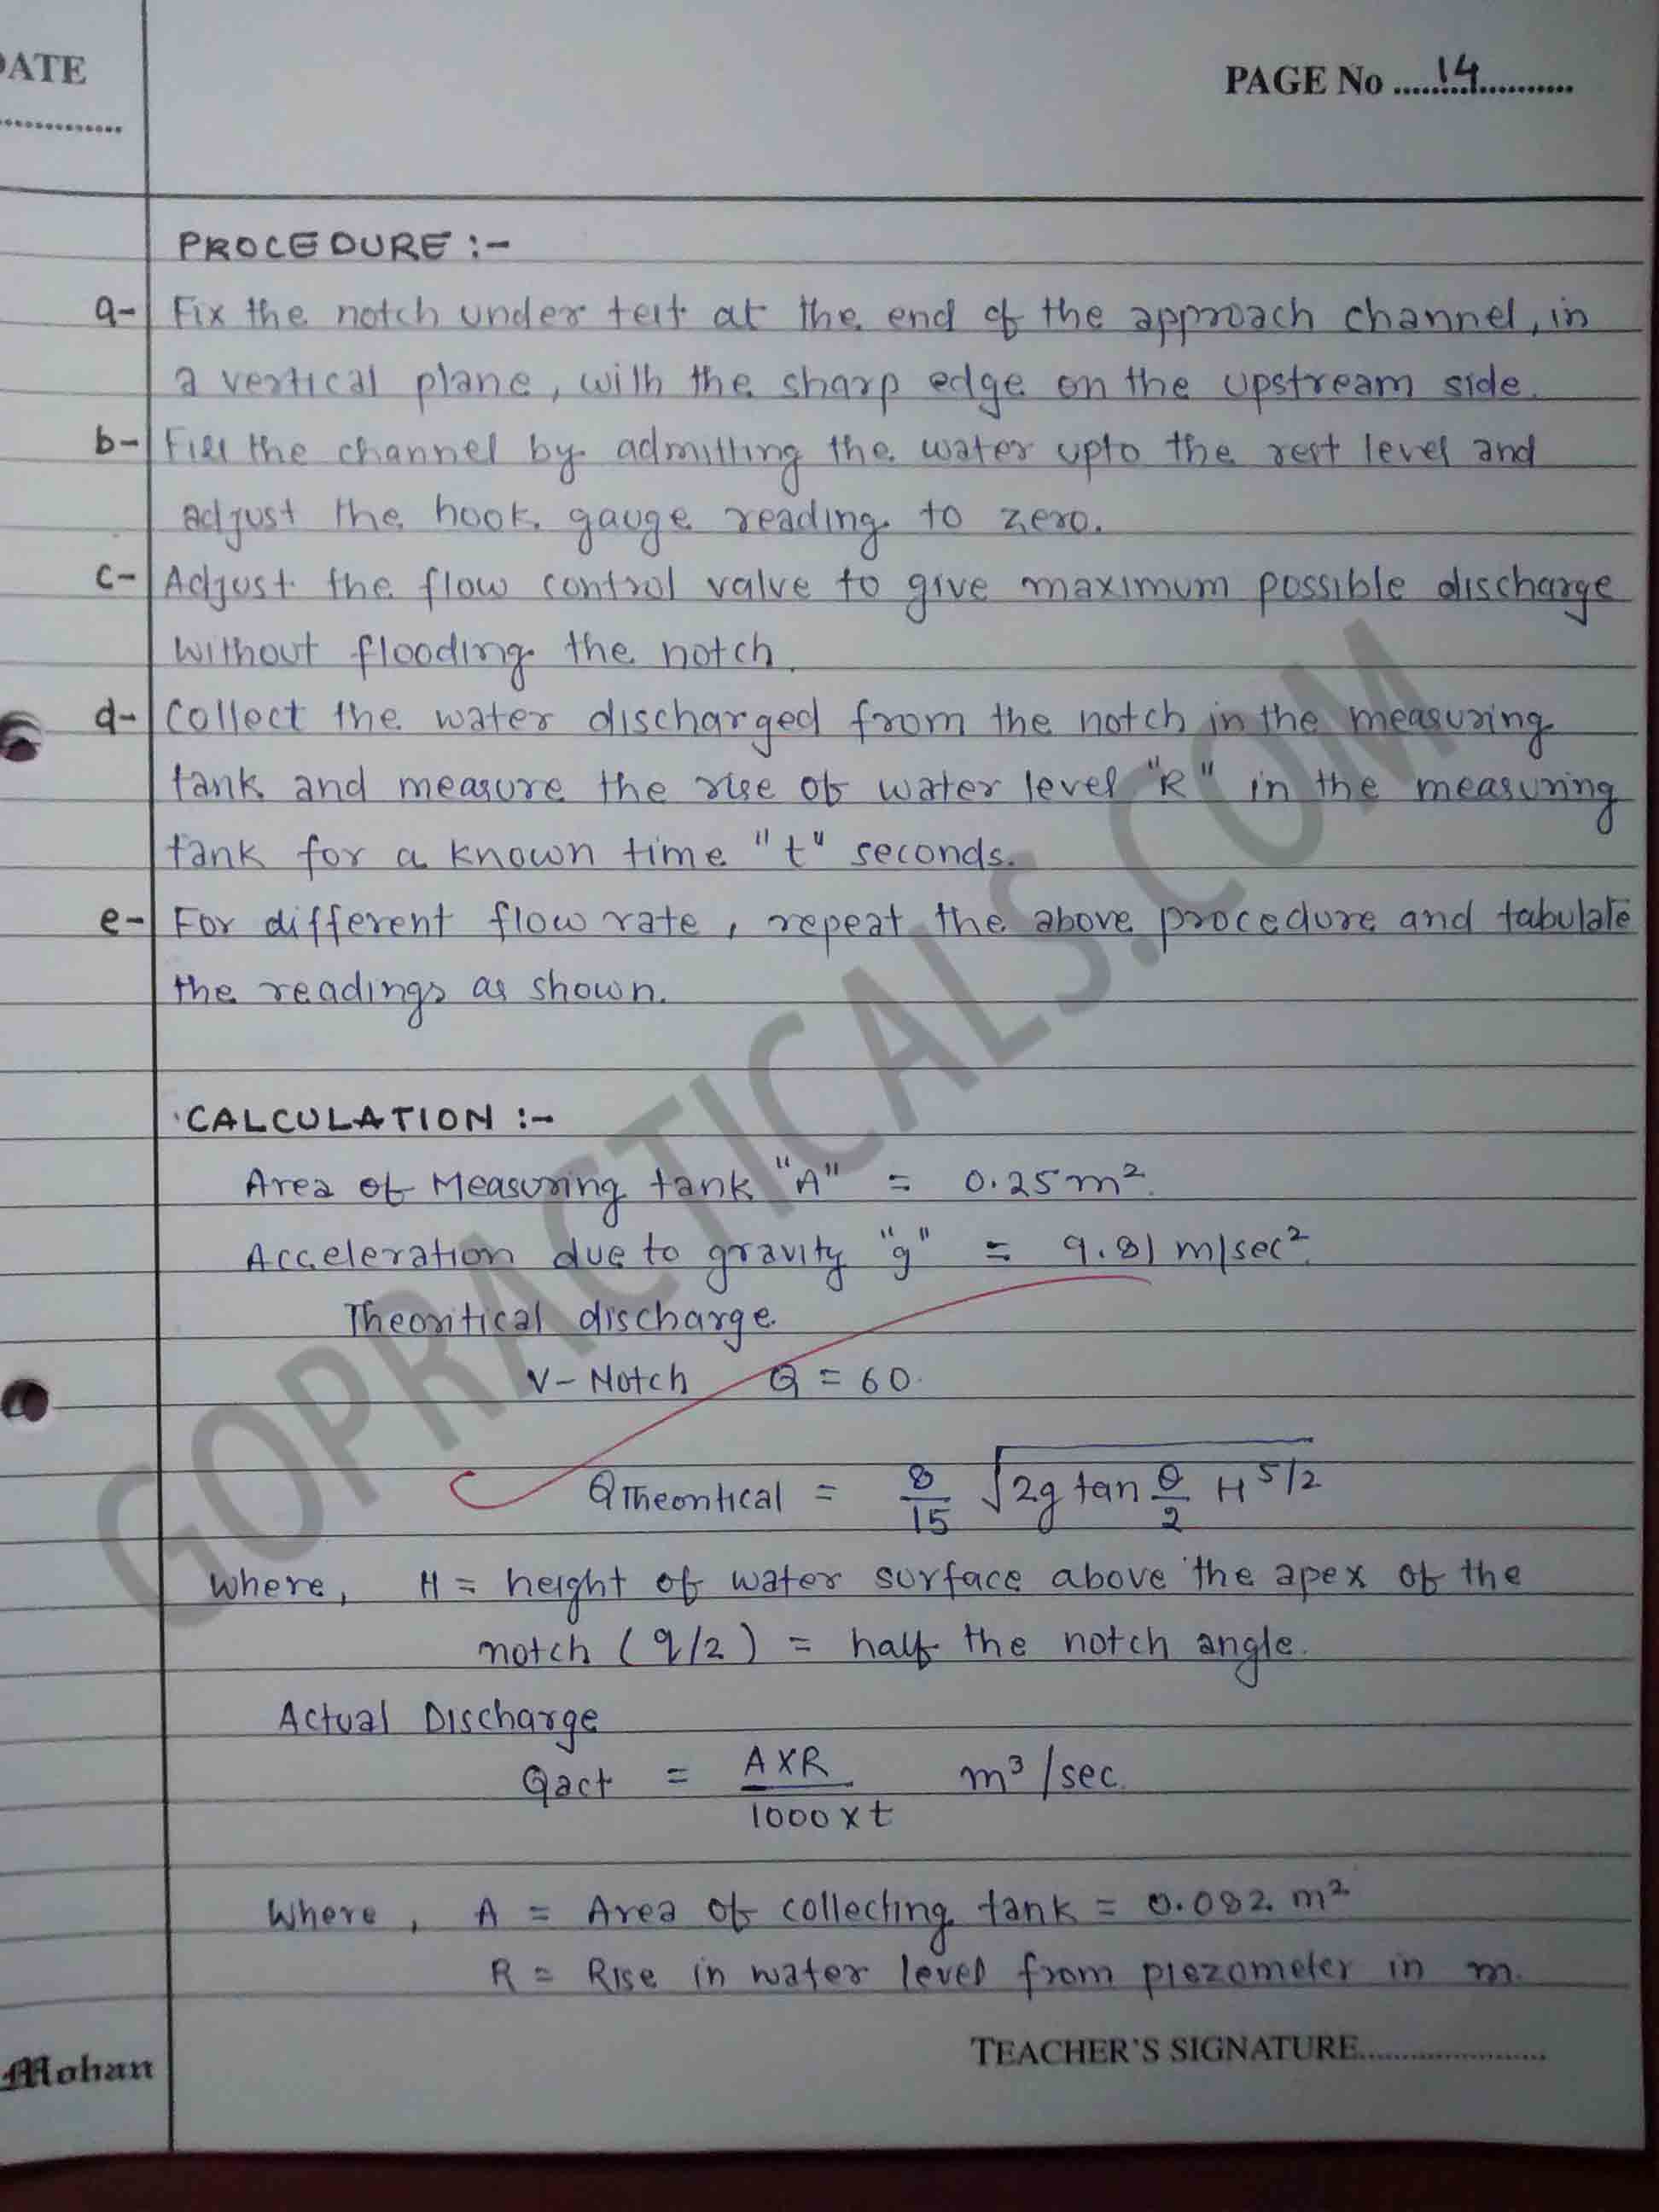 DATE
PAGE No ....14...........
.............
PROCEDURE :-
a- Fix the notch under test at the end of the approach channel, in
a vertical plane, with the sharp edge on the upstream side.
b- Fill the channel by admitting the water upto the rest level and
adjust the hook gauge reading to zero.
c- Adjust the flow control valve to give maximum possible discharge
without flooding the notch.
d- Collect the water discharged from the notch in the measuring
tank and measure the rise of water level "R" in the measuring
tank for a known time "t" seconds.
e- For different flow rate, repeat the above procedure and tabulate
the readings as shown.
CALCULATION :-
Area of Measuring tank "A" = 0.25 m².
Acceleration due to gravity "g" = 9.81 m/sec².
Theoritical discharge.
V-Notch Q = 60.
QTheoritical = 8/15 √2g tan θ/2 H^5/2
Where, H = height of water surface above the apex of the
notch (q/2) = half the notch angle.
Actual Discharge
Qact = A X R / 1000 x t m³/sec.
Where, A = Area of collecting tank = 0.082 m²
R = Rise in water level from piezometer in m.
TEACHER'S SIGNATURE......................
Mohan
GOPRACTICALS.COM